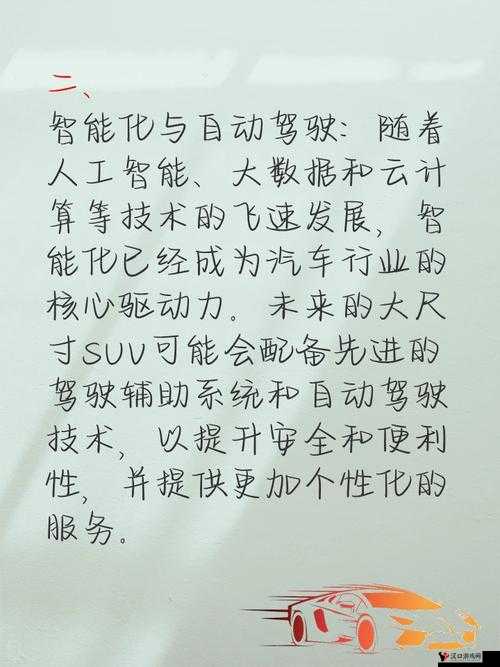 二、
智能化与自动驾驶：随着
人工智能、大数据和云计
算等技术的飞速发展，智
能化已经成为汽车行业的
核心驱动力。未来的大尺
寸SUV可能会配备先进的
驾驶辅助系统和自动驾驶
技术，以提升安全和便利
性，并提供更加个性化的
服务。
汉口游戏网